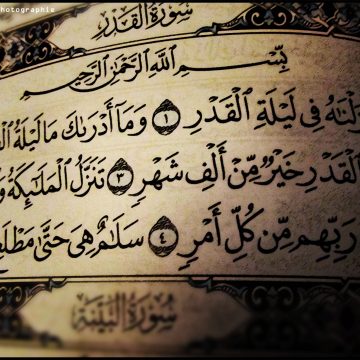 photographie
سُورَةُ القَدْرِ
بِسْمِ اللَّهِ الرَّحْمَٰنِ الرَّحِيمِ
فِي لَيْلَةِ الْقَدْرِ ١ وَمَا أَدْرَىٰكَ مَا لَيْلَةُ
الْقَدْرِ خَيْرٌ مِّنْ أَلْفِ شَهْرٍ ٣ تَنَزَّلُ الْمَلَٰئِكَةُ
رَبِّهِم مِّن كُلِّ أَمْرٍ ٤ سَلَٰمٌ هِيَ حَتَّىٰ
سُورَةُ البَيِّنَةِ